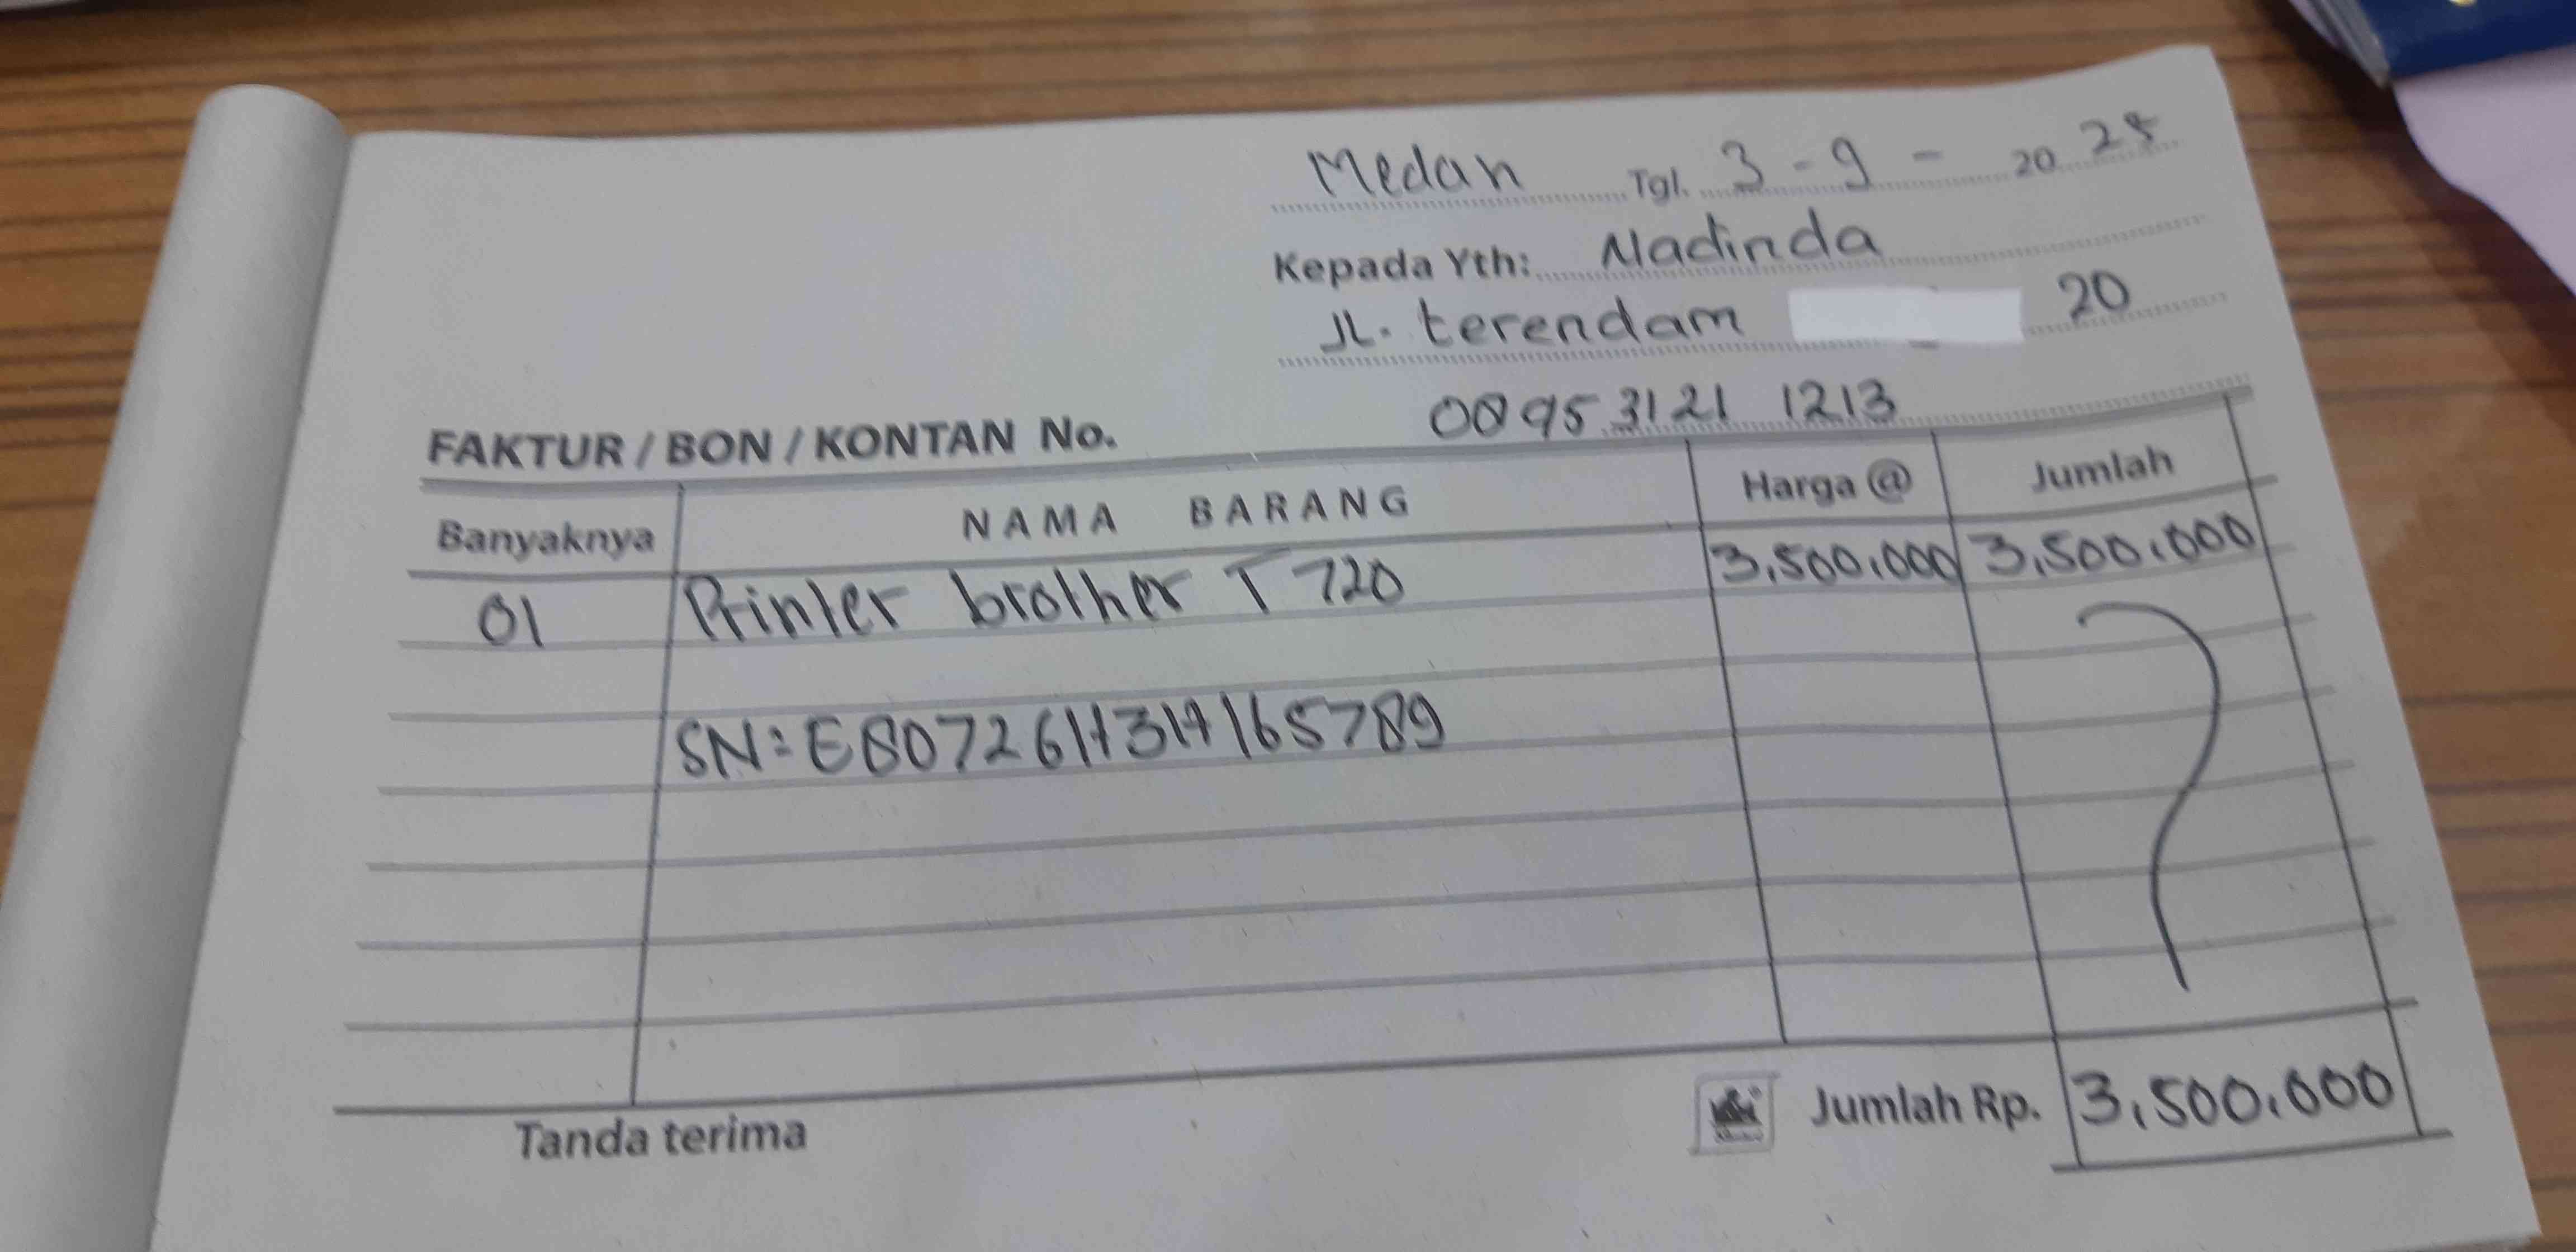 Medan Tgl. 3 - 9 - 20 25
Kepada Yth: Nadinda
JL. terendam 20
0895 3121 1213
FAKTUR / BON / KONTAN No.
Banyaknya NAMA BARANG Harga @ Jumlah
01 Printer brother T 720 3,500,000 3,500,000
SN: E80726H3H165789
Tanda terima Jumlah Rp. 3,500,000